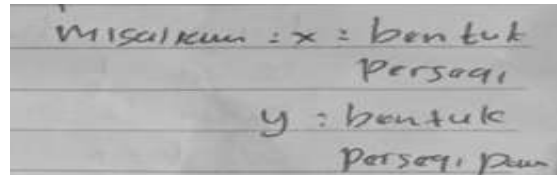 misalkan : x : bentuk
persegi
y : bentuk
persegi pan